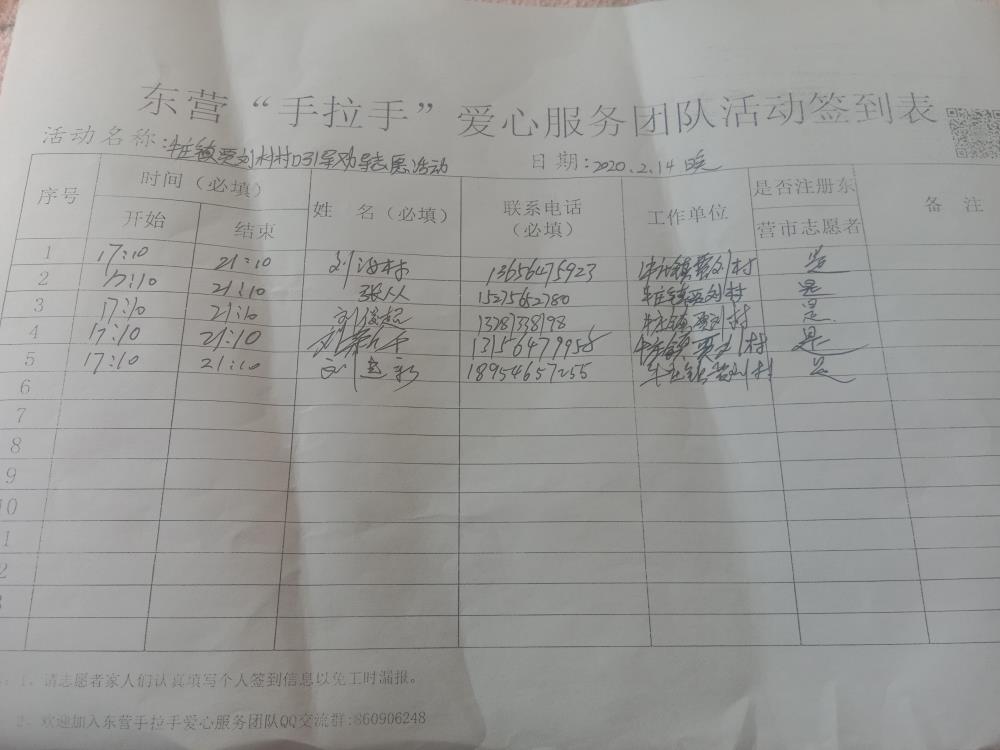 东营“手拉手”爱心服务团队活动签到表
活动名称:牛庄镇贾刘村村口引导劝导志愿活动 日期:2020.2.14晚
序号 时间(必填) 姓 名(必填) 联系电话(必填) 工作单位 是否注册东营市志愿者 备 注
开始 结束
1 17:10 21:10 刘海村 13656475923 牛庄镇贾刘村 是
2 17:10 21:10 张从 15275652780 牛庄镇贾刘村 是
3 17:10 21:10 刘俊超 牛庄镇贾刘村 是
4 17:10 21:10 刘 13156479958 牛庄镇贾刘村 是
5 17:10 21:10 刘 18954657255 牛庄镇贾刘村 是
6
7
8
9
10
1
2
1、请志愿者家人们认真填写个人签到信息以免工时漏报。
2、欢迎加入东营手拉手爱心服务团队QQ交流群:860906248